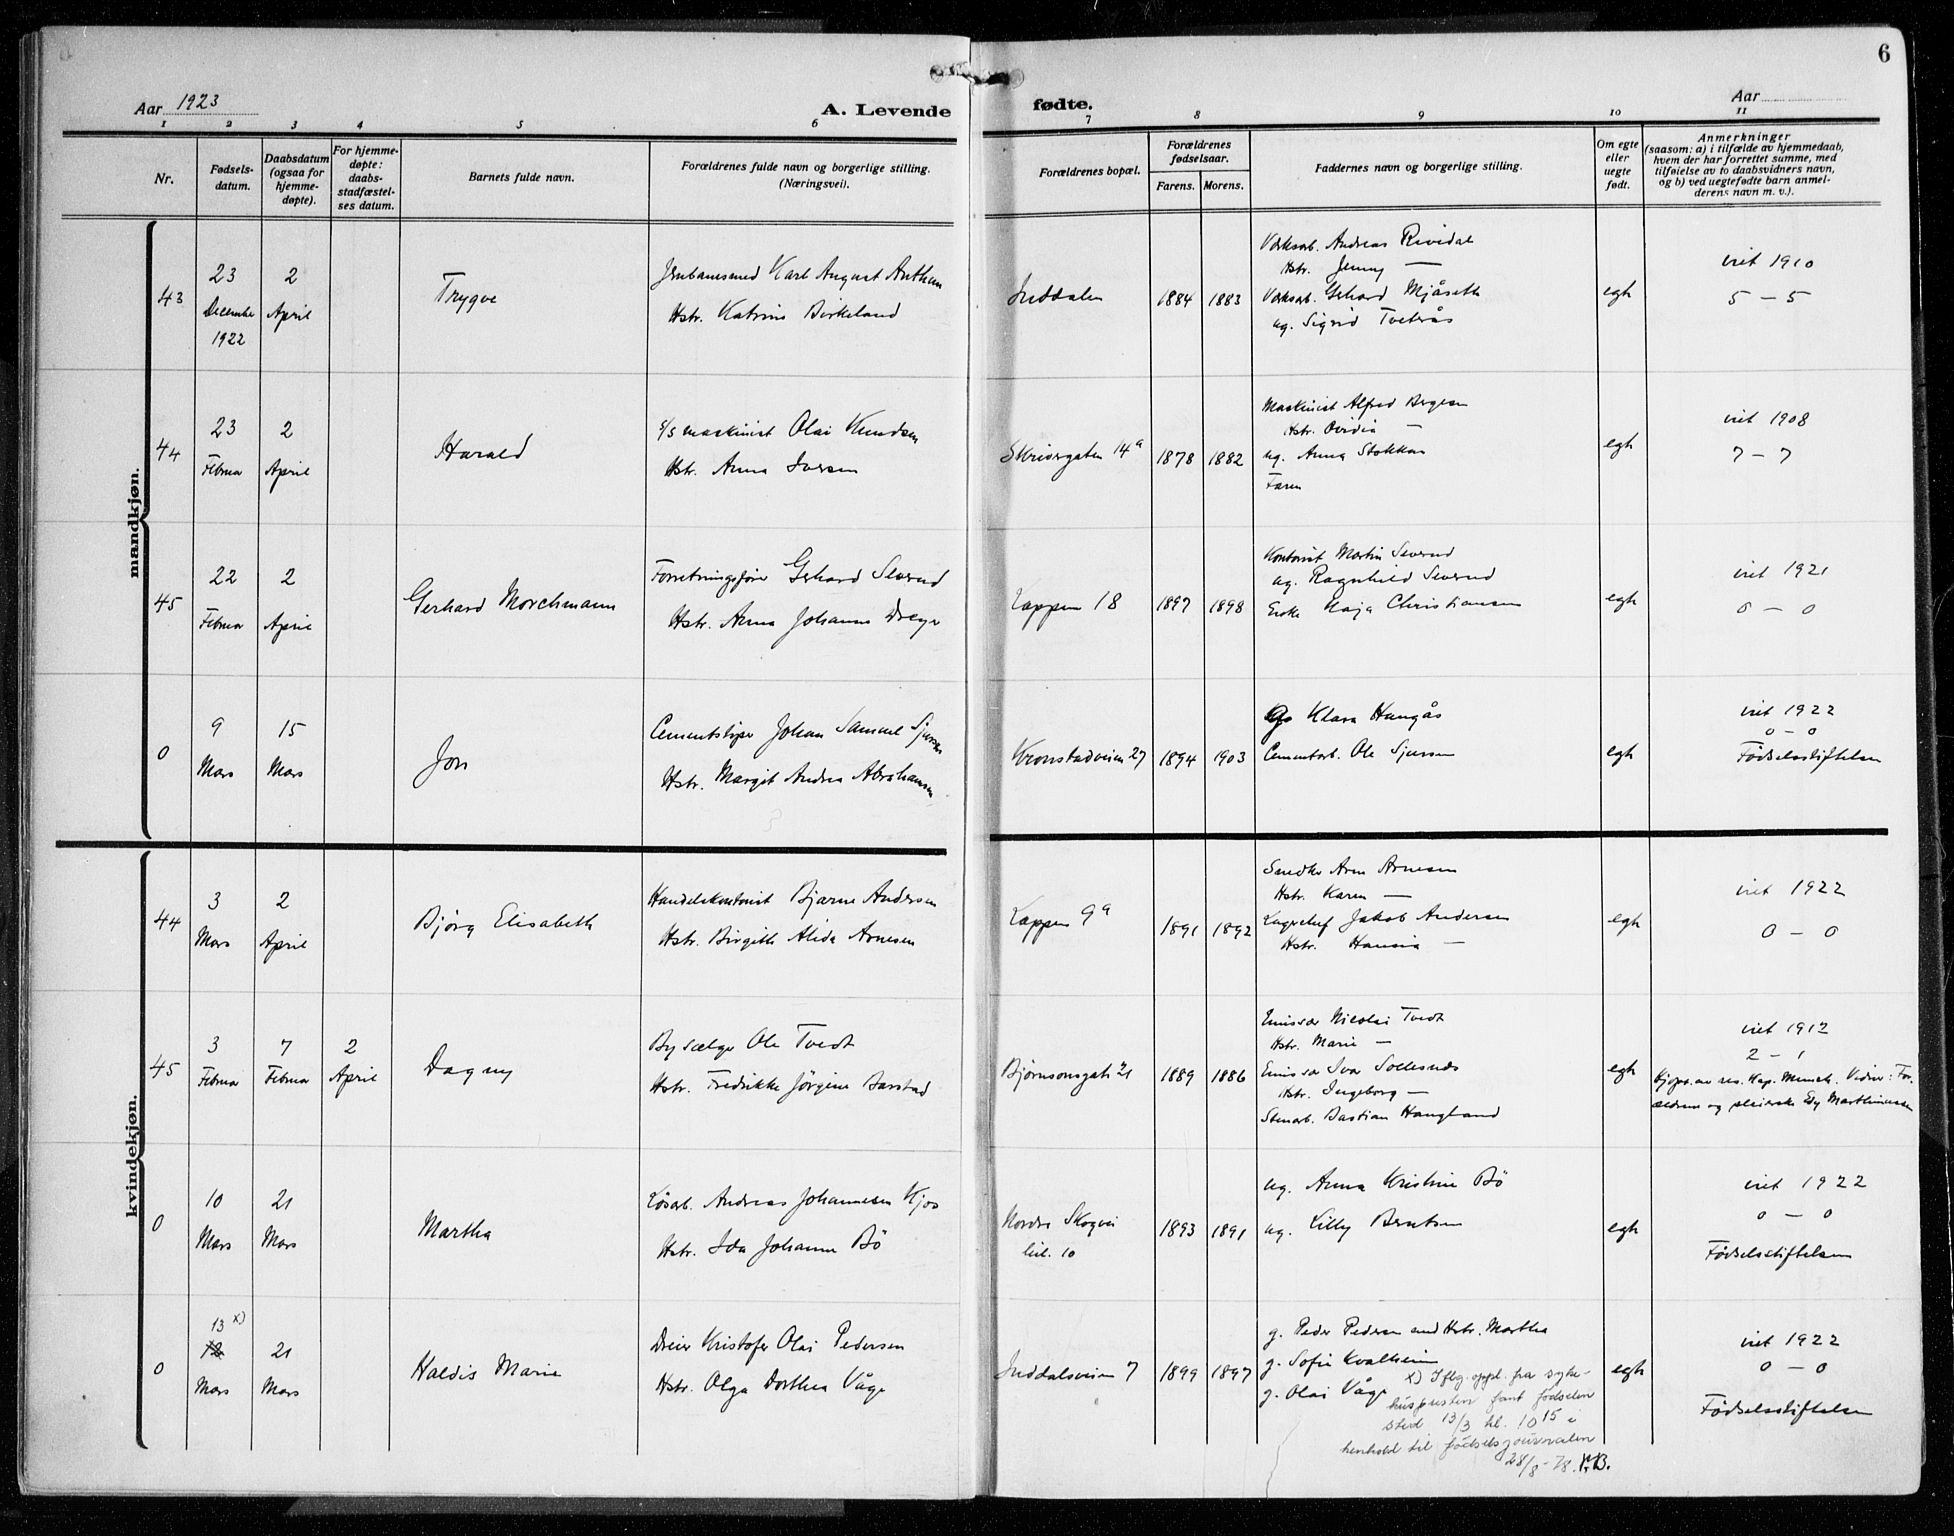 6
Aar 1923
A. Levende
fødte.
Aar
1 2 3 4 5 6 7 8 9 10 11
Nr.
Fødsels-
datum.
Daabsdatum
(ogsaa for
hjemme-
døpte).
For hjemme-
døpte:
daabs-
stadfæstel-
ses datum.
Barnets fulde navn.
Forældrenes fulde navn og borgerlige stilling.
(Næringsvei).
Forældrenes bopæl.
Forældrenes
fødselsaar.
Farens. Morens.
Faddernes navn og borgerlige stilling.
Om egte
eller
uegte
født.
Anmerkninger
(saasom: a) i tilfælde av hjemmedaab,
hvem der har forrettet samme, med
tilføielse av to daabsvidners navn,
og b) ved uegtefødte barn anmel-
derens navn m. v.).
mandkjøn.
43
23
December
1922
2
April
Trygve
Karl August
Hstr. Katrine Birkeland
Inddalen
1884 1883
Andreas Rivedal
Hstr. Jenny —
Gerhard Mjåseth
ug. Sigrid Tveterås
egte
viet 1910
5 – 5
44
23
Februar
2
April
Harald
s/s maskinist Olai Knudsen
Hstr. Anna Iversen
14a
1878 1882
Maskinist Alfred Bergesen
Hstr. Ovidia —
ug. Anna Stokken
Faren
egte
viet 1908
7 – 7
45
22
Februar
2
April
Gerhard Morchmann
Forretningsfører Gerhard Severud
Hstr. Anna Johanne Dreyer
Lappen 18
1897 1898
Kontorist Martin Severud
ug. Ragnhild Severud
Enke Maja Christiansen
egte
viet 1921
0 – 0
0
9
Mars
15
Mars
Jon
Johan Samuel Sjursen
Hstr. Margit Andrea Abrahamsen
Kronstadveien 27
1894 1903
Klara Haugås
Cementarb. Ole Sjursen
egte
viet 1922
0 – 0
Fødselsstiftelsen
kvindekjøn.
44
3
Mars
2
April
Bjørg Elisabeth
Handelskontorist Bjarne Andersen
Hstr. Birgithe Alida Arnesen
Lappen 9a
1891 1892
Snedker Arne Arnesen
Hstr. Karen —
Lagerchef Jakob Andersen
Hstr. Hansia —
egte
viet 1922
0 – 0
45
3
Februar
7
Februar
2
April
Dagny
Bysælger Ole Tvedt
Hstr. Fredrikke Jørgine Aarstad
Bjørnsonsgate 21
1889 1886
Emissær Nicolai Tvedt
Hstr. Marie —
Emissær Ivar Sollesnes
Hstr. Ingeborg —
Stenarb. Bastian Haugland
egte
viet 1912
2 – 1
Hjdpt. av res. Kap. Munch. Vidner: For-
ældrene og pleierske Edy Marthinussen
0
10
Mars
21
Mars
Martha
Løsarb. Andreas Johannesen Kjos
Hstr. Ida Johanne Bø
Nordre Skogvei
10
1893 1891
ug. Anna Kristine Bø
ug. Lilly Berntsen
egte
viet 1922
0 – 0
Fødselsstiftelsen
0
13 x)
12
Mars
21
Mars
Haldis Marie
Dreier Kristofer Olai Pedersen
Hstr. Olga Dorthea Våge
Inddalsveien 7
1899 1897
g. Peder Pedersen and Hstr. Martha
g. Sofie Kvalheim
g. Olai Våge
x) Iflg. oppl. fra syke-
huspresten fant fødselen
sted 13/3 kl. 10 15 i
henhold til fødselsjournalen
28/8-78.
egte
viet 1922
0 – 0
Fødselsstiftelsen